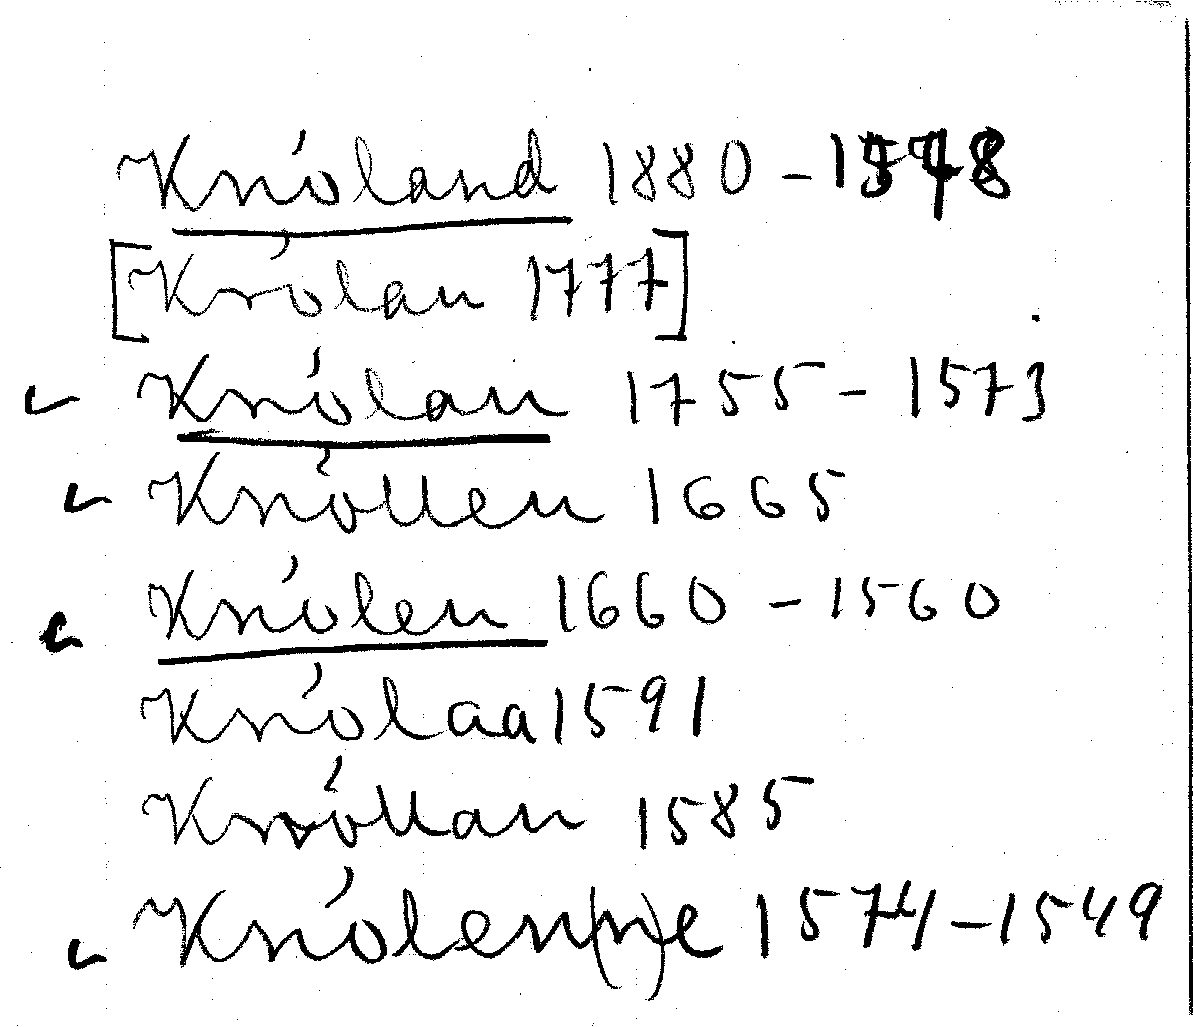 Knóland 1880 - 1578
[Królan 1777]
Knólan 1755 - 1573
Knóllen 1665
Knólen 1660 - 1560
Knólaa 1591
Knóllan 1585
Knólen(n)e 1574 - 1549